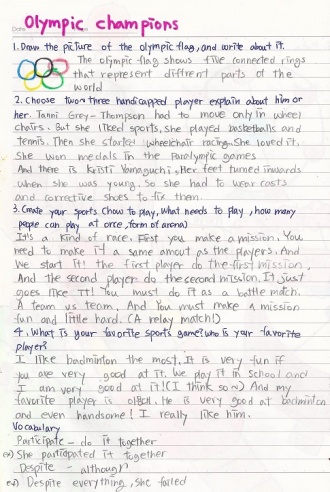 Olympic champions
Date
1. Draw the picture of the olympic flag, and write about it.
The olympic flag shows five connected rings
that represent diffrent parts of the
world
2. Choose two~three handicapped player explain about him or
her. Tanni Grey-Thompson had to move only in wheel
chairs. But she liked sports, she played basketballs and
tennis. Then she started wheelchair racing. She loved it.
She won medals in the Paralympic games
And there is Kristi Yamaguchi, Her feet turned inwards
when she was young. So she had to wear costs
and corrective shoes to fix them.
3. Create your sports (how to play, what needs to play, how many
people can play at once, form of arena)
It's a kind of race. First you make a mission. You
need to make it a same amout as the players. And
we start it! the first player do the first mission,
And the second player do the second mission. It just
goes like It! You must do it as a battle match.
A team vs team. And You must make a mission
fun and little hard. (A relay match!)
4. What is your favorite sports game? who is your favorite
player?
I like badminton the most. It is very fun if
you are very good at it. We play it in school and
I am very good at it! (I think so~) And my
favorite player is 이용대. He is very good at badminton
and even handsome! I really like him.
Vocabulary
Participate - do it together
(ex) She participated it together
Despite - althougn
ex) Despite everything, she failed